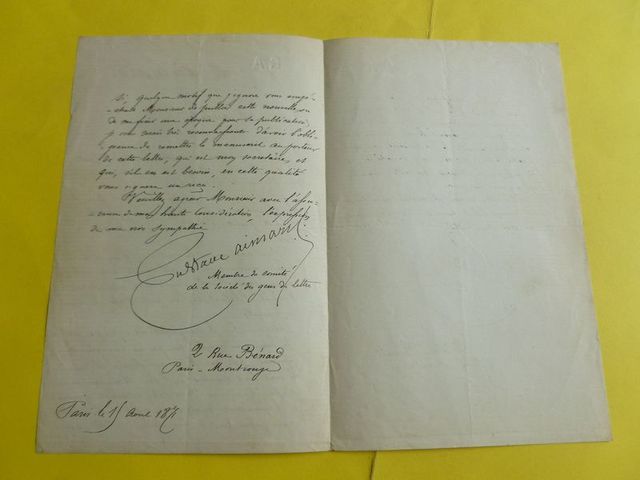 Si quelque motif que j'ignore vous empê-
chait Monsieur de publier cette nouvelle, ou
de me fixer une époque pour sa publication,
je vous serais très reconnaissant d'avoir l'obli-
geance de remettre le manuscrit au porteur
de cette lettre, qui est mon secrétaire, et
qui, s'il en est besoin, en cette qualité
vous signera un reçu.
Veuillez agréer Monsieur avec l'assu-
rance de ma haute considération, l'expression
de ma vive sympathie
Gustave aimard
Membre du comité
de la société des gens de lettre
2 Rue Bénard
Paris - Montrouge
Paris le 15 Avril